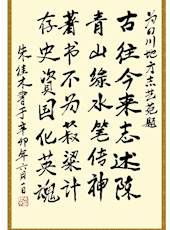 为日川地方志芸苑题
古往今来志述陈
青山绿水笔传神
著书不为菽粱计
存史资国化英魂
朱佳木书于辛卯年六月一日